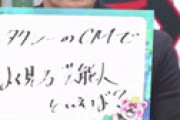 タクシーのCMで
よく見る芸能人
といえば？